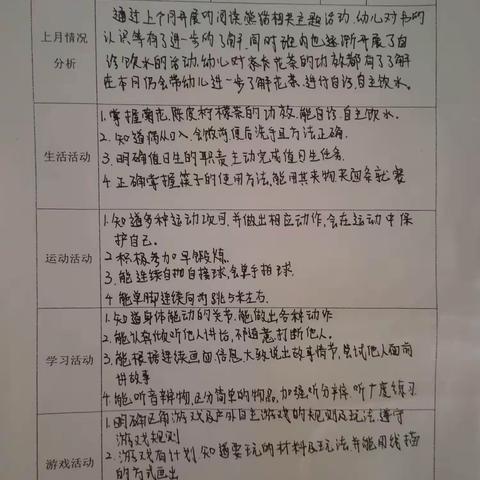 上月情况
分析
通过上个月开展的阅读能馆相关主题活动,幼儿对书的
认识等有了进一步的了解,同时班内也逐渐开展了自
饮水的活动,幼儿对茶花茶的功效都有了了解
在本月仍会带幼儿进一步了解花茶,进行自主饮水。
生活活动
1.掌握菊花、陈皮柠檬茶的功效,能自主饮水。
2.知道病从口入,会饭前便后洗手且方法正确.
3.明确值日生的职责主动完成值日生任务.
4.正确掌握筷子的使用方法,能用其夹物夹面条就餐
运动活动
1.知道多种运动项目,并做出相应动作,会在运动中保
护自己。
2.积极参加早锻炼.
3.能连续自抛自接球,会单手拍球
4.能单脚连续向前跳5米左右.
学习活动
1.知道身体能动的关节,能做出各种动作
2.能认真倾听他人讲话,不随意打断他人.
3.能根据连续画面信息,大致说出故事情节,尝试他人面前
讲故事
4.能听音辨物,区分简单的物品,加强听分辨、听广度练习
游戏活动
1.明确区角游戏及户外自主游戏的规则及玩法遵守
游戏规则
2.游戏有计划,知道要玩的材料及玩法并能用绘描
的方式画出